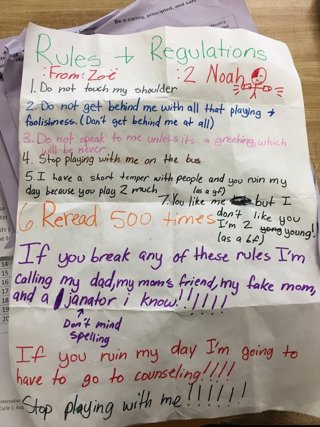 Be a caring, principled, and safe
Rules + Regulations
:From: Zoë :2 Noah
1. Do not touch my shoulder
2. Do not get behind me with all that playing +
foolishness. (Don't get behind me at all)
3. Do not speak to me unless its a greeting, which
will be never.
4. Stop playing with me on the bus
5. I have a short temper with people and you ruin my
day because you play 2 much (as a gf)
7. You like me but I
don't like you
I'm 2 young!
(as a bf)
6 Reread 500 times
If you break any of these rules I'm
calling my dad, my mom's friend, my fake mom,
and a janator i know!!!!!!
Don't mind
spelling
If you ruin my day I'm going to
have to go to counseling!!!!
Stop playing with me!!!!!!
14
15
16
17
18
19
20